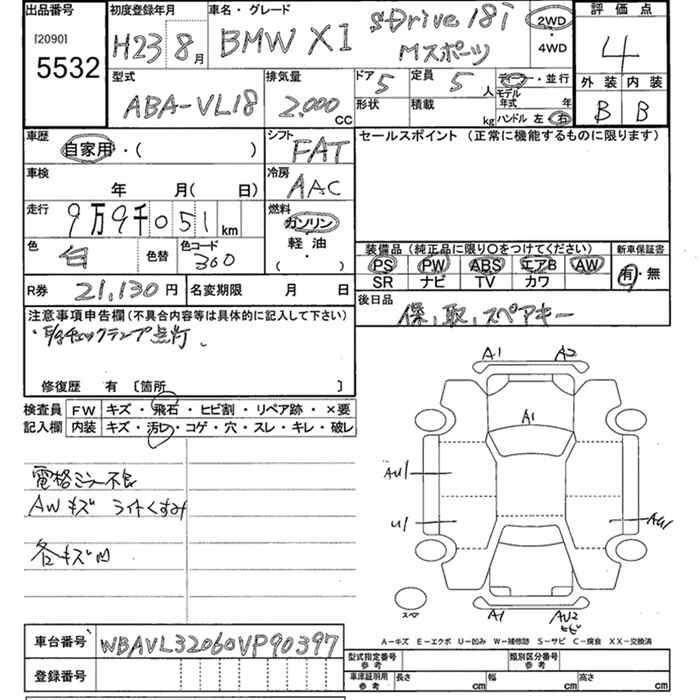 出品番号 初度登録年月 車名・グレード 評価点
[2090] H23 8月 BMW X1 sDrive 18i 2WD 4
5532 Mスポーツ ・4WD
型式 排気量 ドア 定員 ディーラー・並行 外装 内装
ABA-VL18 2,000 cc 5 5人 モデル年式 年 B B
形状 積載 kg ハンドル 左 右
車歴 シフト セールスポイント (正常に機能するものに限ります)
自家用・( ) FAT
車検 冷房
年 月(日) AAC
走行 燃料
9万9千051km ガソリン
色 色替 色コード 軽・油 装備品 (純正品に限り○をつけてください) 新車保証書
白 300 ( ) PS PW ABS エアB AW 有・無
SR ナビ TV カワ
R券 21,130円 名変期限 月 日 後日品
注意事項申告欄 (不具合内容等は具体的に記入して下さい) 保,取,スペアキー
・E/gチェックランプ点灯
修復歴 有 〔箇所 〕
検査員 FW キズ・飛石・ヒビ割・リペア跡・×要
記入欄 内装 キズ・汚レ・コゲ・穴・スレ・キレ・破レ
A1 A2
A1
電格ミラー不良 AU1
AWキズ ライトくすみ
U1 AU1
各キズM
スペア
A1 AU2
ヒビ
A-キズ E-エクボ U-凹み W-補修跡 S-サビ C-腐食 XX-交換済
車台番号 WBAVL32060VP90397
型式指定番号 参考 類別区分番号 参考
登録番号 車庫証明用 参考 長さ cm 幅 cm 高さ cm